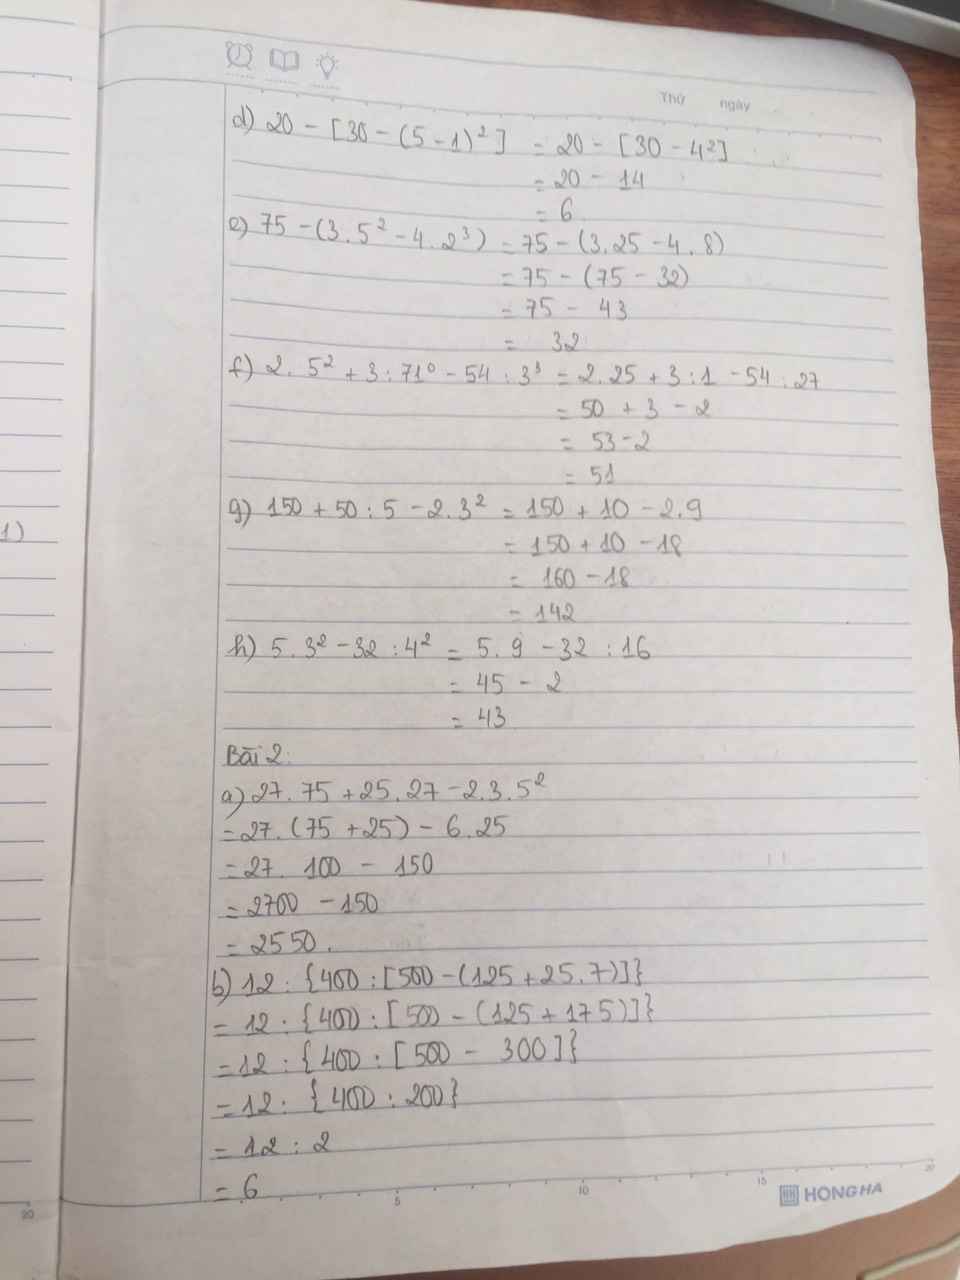 Thứ ngày
d) 20 - [30 - (5 - 1)² ] = 20 - [30 - 4²]
= 20 - 14
= 6
e) 75 - (3.5² - 4.2³) = 75 - (3.25 - 4.8)
= 75 - (75 - 32)
= 75 - 43
= 32
f) 2. 5² + 3 : 71⁰ - 54 : 3³ = 2.25 + 3 : 1 - 54 : 27
= 50 + 3 - 2
= 53 - 2
= 51
g) 150 + 50 : 5 - 2.3² = 150 + 10 - 2.9
= 150 + 10 - 18
= 160 - 18
= 142
1)
h) 5.3² - 32 : 4² = 5.9 - 32 : 16
= 45 - 2
= 43
Bài 2:
a) 27.75 + 25.27 - 2.3.5²
= 27.(75 + 25) - 6.25
= 27. 100 - 150
= 2700 - 150
= 2550.
b) 12 : {400 : [500 - (125 + 25.7)]}
= 12 : {400 : [500 - (125 + 175)]}
= 12 : {400 : [500 - 300]}
= 12 : {400 : 200}
= 12 : 2
= 6
20 5 10 15 20
HH HONG HA